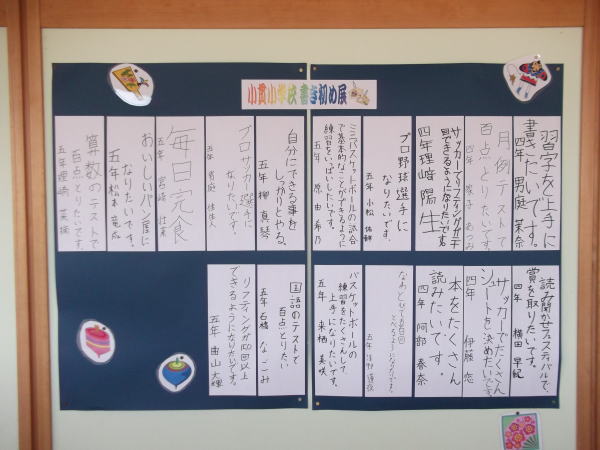 小貫小学校 書き初め展
習字を上手に
書きたいです。
四年 男庭 茉奈
月例テストで
百点とりたいです。
サッカーでリフティングが千
回できるようになりたいですね
四年 理崎 陽生
プロ野球選手に
なりたいです。
五年 小松
ミニバスケットボールの試合
で基本的なことができるように
練習をいっぱいしたいです。
五年 原 由希乃
自分にできる事を
しっかりとやる。
五年 柳 真琴
プロサッカー選手に
なりたいです。
五年 男庭
毎日完食
五年 宮崎
おいしいパン屋に
なりたいです。
五年 松本 竜成
算数のテストで
百点とりたいです。
五年 理崎
読み聞かせフェスティバルで、
賞を取りたいです。
四年 横田 早紀
サッカーでたくさん
シュートを決めたいです
四年 伊藤 悠
本をたくさん
読みたいです。
四年 阿部 春奈
なわとびで
とべるようになりたいです。
五年
バスケットボールの
練習をたくさんして、
上手になりたいです。
五年 来栖 美咲
国語のテストで
百点とりたい
五年 石橋 なごみ
リフティングが100回以上
できるようになりたいです。
五年 由山 大輝